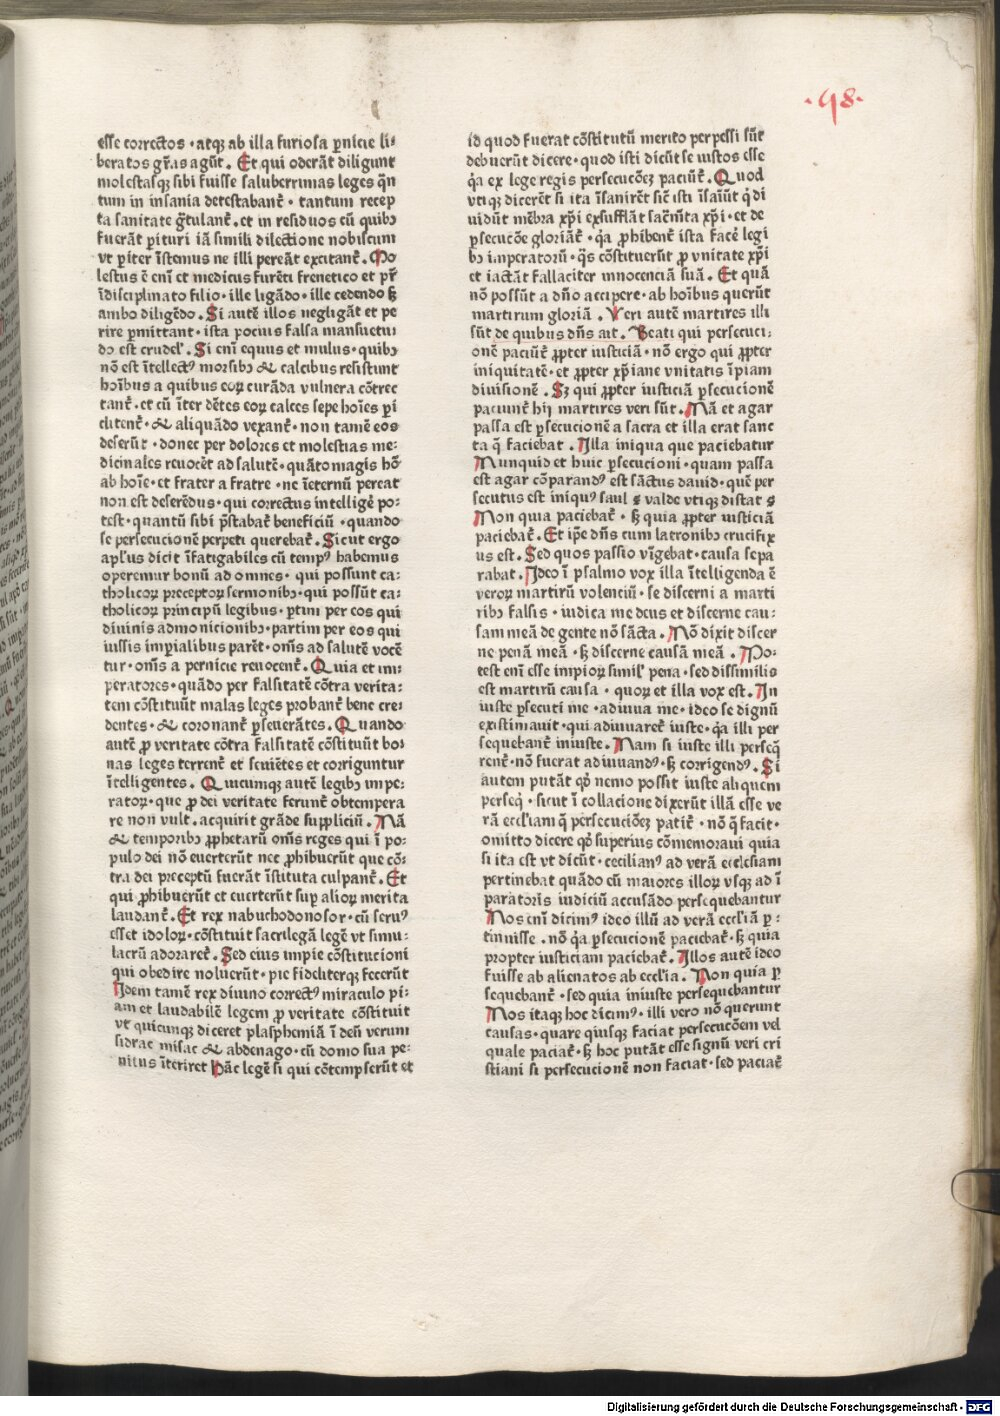 ·98·
esse correctos · atqȝ ab illa furiosa ꝑnicie li⸗
beratos gr̄as agūt . Et qui oderāt diligunt
molestasqȝ sibi fuisse saluberrimas leges q̄n
tum in insania detestabant᷑ · tantum recep
ta sanitate gr̄tulant᷑ . et in residuos cū quibꝫ
fuerāt ꝑituri iā simili dilectione nobiscum
vt ꝑiter īstemus ne illi pereāt excitant᷑ . Mo
lestus ē eni᷑ et medicus furēti frenetico et pr̄
īdisciplinato filio · ille ligādo · ille cedendo sꝫ
ambo diligēdo . Si autē illos negligāt et pe
rire ꝑmittant · ista pocius falsa mansuetu⸗
do est crudel᷑ . Si eni᷑ equus et mulus · quibꝫ
nō est ītellectꝰ morsibꝫ & calcibus resistunt
hoībus a quibus eoꝝ curāda vulnera cōtrec
tant᷑ · et cū īter dētes eoꝝ calces sepe hoīes ꝑi
clitent᷑ · & aliquādo vexant᷑ · non tamē eos
deserūt · donec per dolores et molestias me⸗
dicinales reuocēt ad salutē · quātomagis hō
ab hoīe · et frater a fratre · ne īeternū pereat
non est deserēdus · qui correctus intelligē po⸗
test · quantū sibi p̄stabat᷑ beneficiū · quando
se persecucionē perpeti querebat᷑ . Sicut ergo
apl'us dicit īfatigabiles cū tempꝰ habemus
operemur bonū ad omnes · qui possunt ca⸗
tholicoꝝ preceptoꝝ sermonibꝫ · qui possūt ca⸗
tholicoꝝ principū legibus · ꝑtim per eos qui
diuinis admonicionibꝫ · partim per eos qui
iussis imꝑialibus parēt · om̄s ad salutē vocē
tur · om̄s a pernicie reuocent᷑ . Quia et im⸗
peratores · quādo per falsitatē cōtra verita⸗
tem cōstituūt malas leges probant᷑ bene cre⸗
dentes · & coronant᷑ ꝑseuerātes . Quando
autē ꝓ veritate cōtra falsitatē cōstituūt bo⸗
nas leges terrent᷑ et seuiētes et corriguntur
ītelligentes . Quicumqȝ autē legibꝫ impe⸗
ratoꝝ · que ꝓ dei veritate ferunt᷑ obtempera
re non vult . acquirit grāde suppliciū . Nā
& temporibꝫ ꝓphetarū om̄s reges qui ī po⸗
pulo dei nō euerterūt nec ꝓhibuerūt que cō⸗
tra dei preceptū fuerāt īstituta culpant᷑ . Et
qui ꝓhibuerūt et euerterūt suꝑ alioꝝ merita
laudant᷑ . Et rex nabuchodonosor · cū seruꝰ
esset idoloꝝ · cōstituit sacrilegā legē vt simu⸗
lacrū adoraret᷑ . Sed eius impie cōstitucioni
qui obedire noluerūt · pie fideliterqȝ fecerūt
Idem tamē rex diuino correctꝰ miraculo pi⸗
am et laudabilē legem ꝓ veritate cōstituit
vt quicumqȝ diceret plasphemiā ī deū verum
sidrac misac & abdenago · cū domo sua pe⸗
nitus īteriret Hāc legē si qui cōtempserūt et
id quod fuerat cōstitutū merito perpessi sūt
debuerūt dicere · quod isti dicūt se iustos esse
q̄a ex lege regis persecucōeȝ paciūt᷑ . Quod
vtiqȝ dicerēt si ita īsanirēt sic᷑ isti īsaīūt q̄ di
uidūt mēbra xp̄i exsufflāt sac̄m̄ta xp̄i · et de
ꝑsecucōe gloriāt᷑ · q̄a ꝓhibent᷑ ista facē legi
bꝫ imperatorū · q̄s cōstituerūt ꝓ vnitate xp̄i
et iactāt fallaciter innocenciā suā . Et quā
nō possūt a dn̄o accipere · ab hoībus querūt
martirum gloriā . Veri autē martires illi
sūt de quibus dn̄s ait . Beati qui persecuci⸗
onē paciūt᷑ ꝓpter iusticiā · nō ergo qui ꝓpter
iniquitatē · et ꝓpter xp̄iane vnitatis īpiam
diuisionē . Sꝫ qui ꝓpter iusticiā ꝑsecucionē
paciunt᷑ hij martires veri sūt . Nā et agar
passa est ꝑsecucionē a sacra et illa erat sanc
ta q̄ faciebat . Illa iniqua que paciebatur
Nunquid et huic ꝑsecucioni · quam passa
est agar cōparandꝰ est sāctus dauid · quē per
secutus est iniquꝰ saul valde vtiqȝ distat
Non quia paciebat᷑ · sꝫ quia ꝓpter iusticiā
paciebat᷑ . Et ip̄e dn̄s cum latronibꝫ crucifix
us est . Sed quos passio vīgebat · causa sepa
rabat . Ideo ī psalmo vox illa ītelligenda ē
veroꝝ martirū volenciū · se discerni a marti
ribꝫ falsis · iudica me deus et discerne cau⸗
sam meā de gente nō sācta . Nō dixit discer
ne penā meā · sꝫ discerne causā meā . Po⸗
test eni᷑ esse impioꝝ simil᷑ pena · sed dissimilis
est martirū causa · quoꝝ et illa vox est . In
iuste ꝑsecuti me · adiuua me · ideo se dignū
existimauit · qui adiuuaret᷑ iuste · q̄a illi per
sequebant᷑ iniuste . Nam si iuste illi perseq̄
rent᷑ · nō fuerat adiuuandꝰ · sꝫ corrigendꝰ . Si
autem putāt qꝰ nemo possit iuste aliquem
perseq̄ · sicut ī collacione dixerūt illā esse ve
rā eccl'iam q̄ persecucōeȝ patit᷑ · nō q̄ facit ·
omitto dicere qꝰ superius cōmemoraui quia
si ita est vt dicūt · cecilianꝰ ad verā ecclesiam
pertinebat quādo eū maiores illoꝝ vsqȝ ad ī
paratoris iudiciū accusādo persequebantur
Nos eni᷑ dicimꝰ ideo illū ad verā eccl'iā ꝑ⸗
tinuisse . nō q̄a ꝑsecucionē paciebat᷑ · sꝫ quia
propter iusticiam paciebat᷑ . Illos autē ideo
fuisse ab alienatos ab eccl'ia . Non quia ꝑ
sequebant᷑ · sed quia iniuste persequebantur
Nos itaqȝ hoc dicimꝰ · illi vero nō querunt
causas · quare quisqȝ faciat persecucōem vel
quale paciat᷑ · sꝫ hoc putāt esse signū veri cri
stiani si persecucionē non faciat · sed paciat᷑
Digitalisierung gefördert durch die Deutsche Forschungsgemeinschaft - DFG